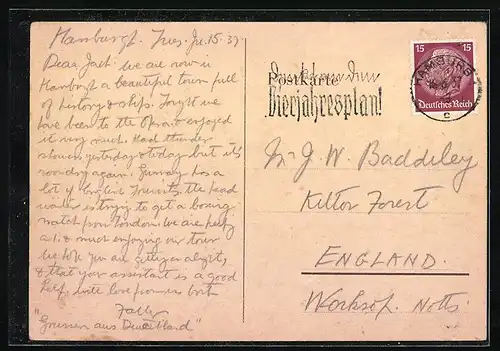 Hamburg. Tues. Ju. 15. 37.
Dear Jack. we are now in
Hamburg a beautiful town full
of history & ships. Last we
have been to the Opera & enjoyed
it very much. Had thunder
showers yesterday & today but it's
again. Germany has a
lot of English Tourists, the head
waiter is trying to get a boxing
match from London. We are
& much enjoying our tour
We hope you are getting on alright,
& that your assistant is a good
help, with love from us both
"Grüssen aus Deutschland"
Postkarte
Vierjahresplan!
15 15
Deutsches Reich
HAMBURG
c
Mr J. W. Baddiley
Kilton Forest
ENGLAND.
Worksop. Notts.